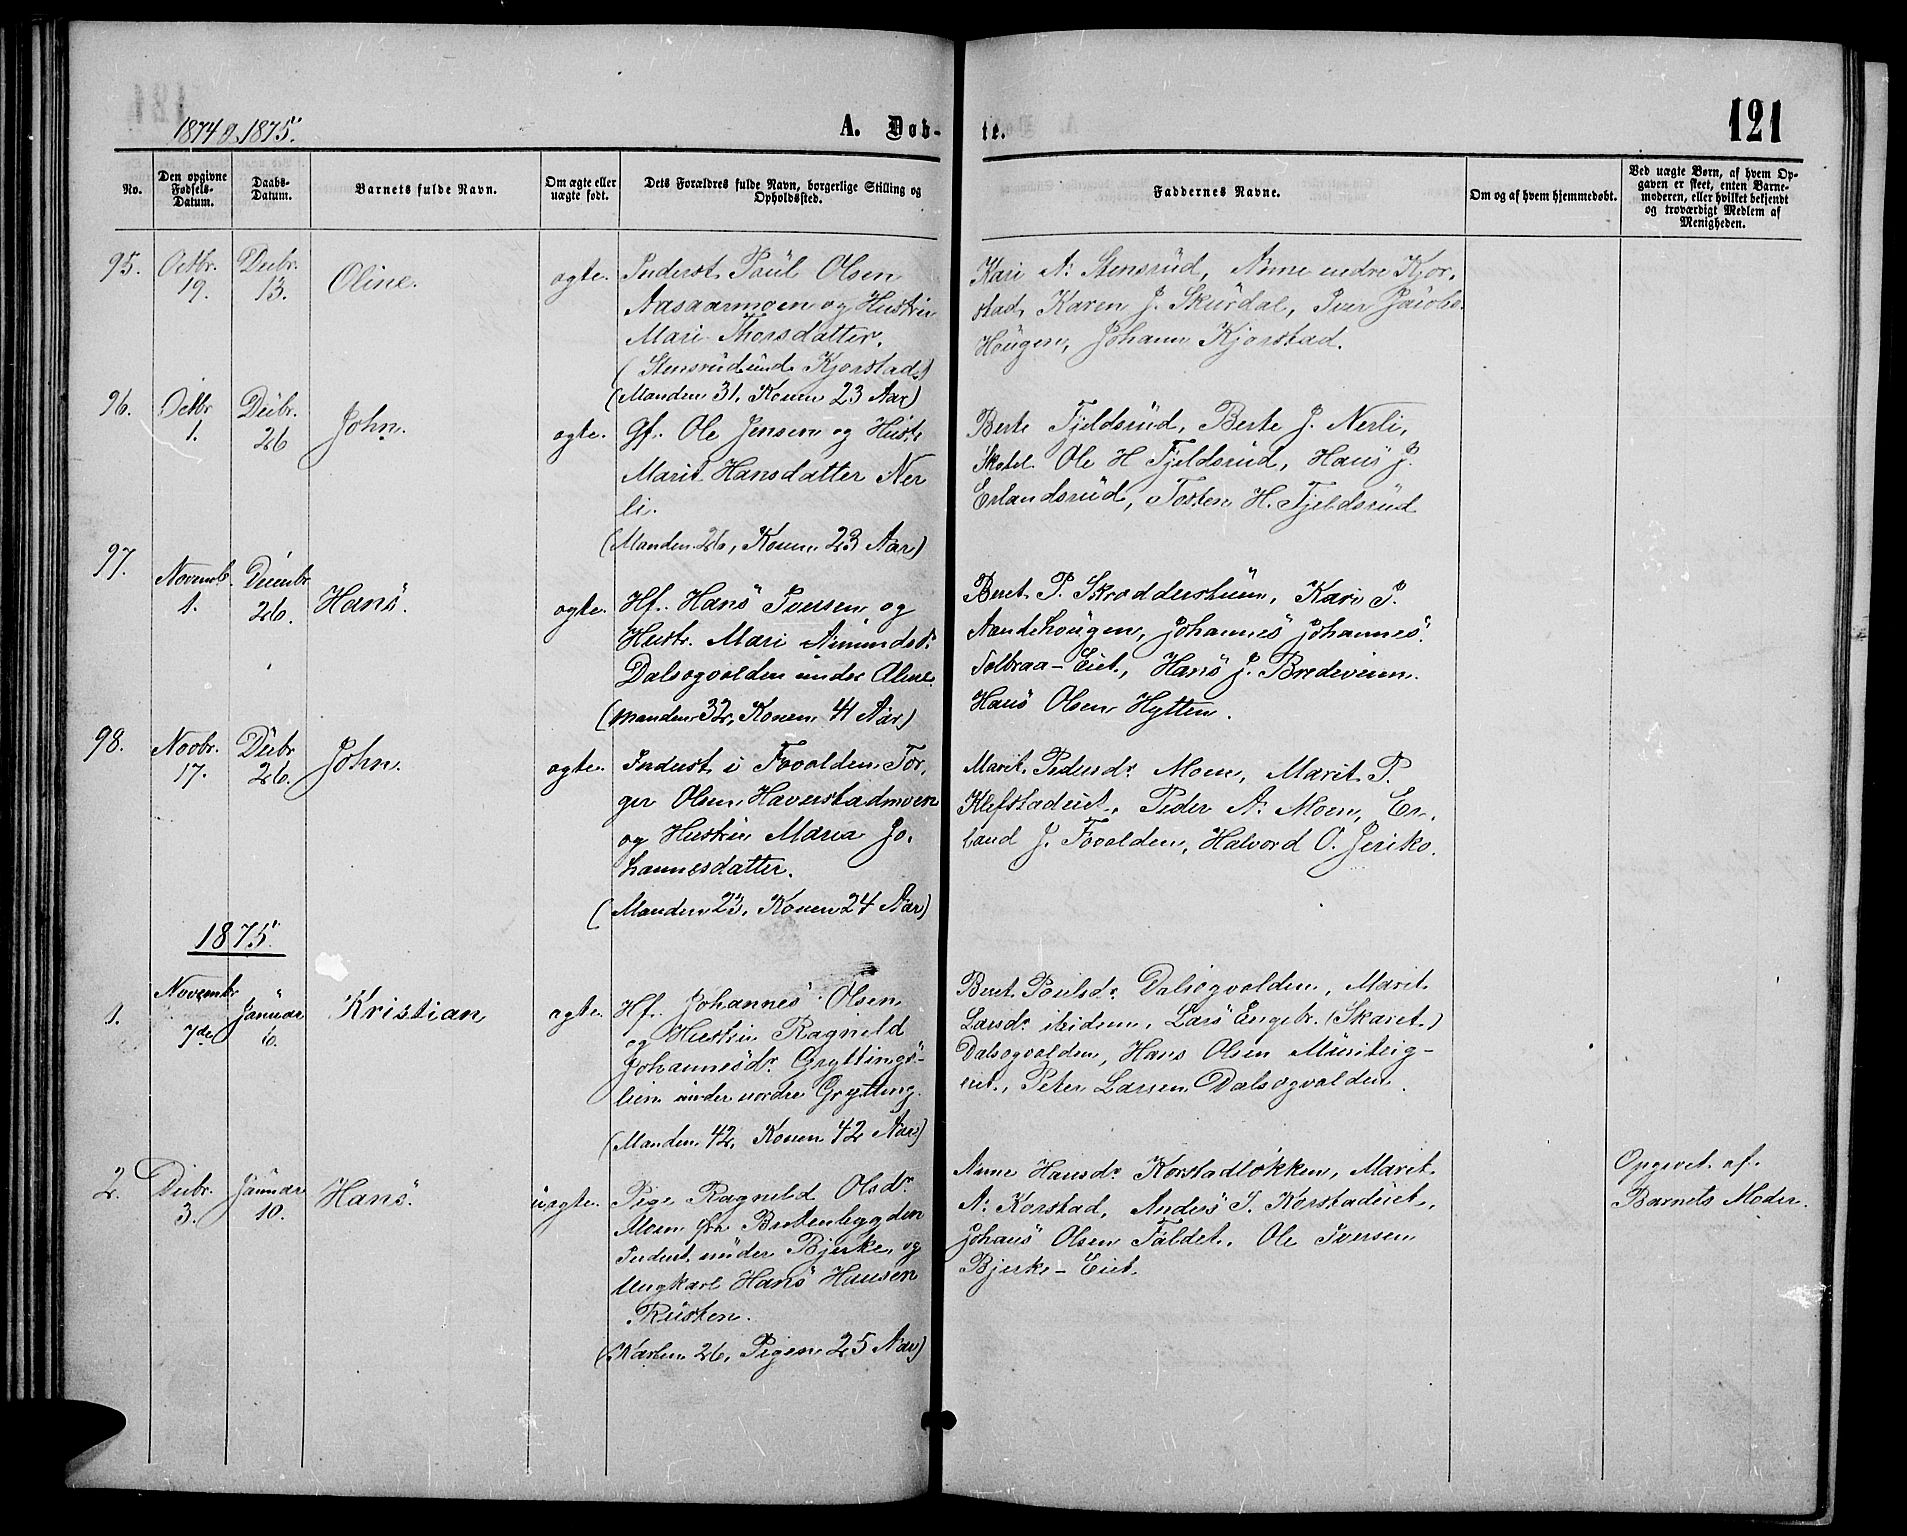 1874 og 1875.
A. Døb-
te.
121
No.
Den opgivne
Fødsels-
Datum.
Daabs-
Datum.
Barnets fulde Navn.
Om ægte eller
uægte født.
Dets Forældres fulde Navn, borgerlige Stilling og
Opholdssted.
Faddernes Navne.
Om og af hvem hjemmedøbt.
Ved uægte Børn, af hvem Op-
gaven er skeet, enten Barne-
moderen, eller hvilket bekjendt
og troværdigt Medlem af
Menigheden.
95.
Octbr.
19.
Decbr.
13.
Oline.
ægte.
Inderst Paul Olsen
Aasaarmoen og Hustru
Mari Thorsdatter.
(Stensrud und. Kjorstad)
(Manden 31, Konen 23 Aar)
Kari A. Stensrud, Anne nedre Kjor-
stad, Karen J. Skurdal, Iver Jacobs.
Hougen, Johann Kjorstad.
96.
Octbr.
1.
Decbr.
26
John.
ægte.
Gf. Ole Jensen og Hustr.
Marit Hansdatter Ner
li.
(Manden 26, Konen 23 Aar)
Berte Fjeldsrud, Berte J. Nerli,
Ole H Fjeldsrud, Hans J.
Erlandsrud, Tosten H. Fjeldsrud
97.
Novemb.
1.
Decembr
26.
Hans.
ægte.
Hf. Hans Iversen og
Hustr. Mari Amundsdr.
Dalsegvolden under Alme.
(Manden 32, Konen 41 Aar)
Beret P. Skrodderstuen, Kari P.
Aandehougen, Johannes Johannes.
Tolbraa-Eiet, Hans J. Bredevien.
Hans Olsen Hytten.
98.
Novbr.
17.
Decbr
26.
John.
ægte.
Inderst i Fovolden Tor-
ger Olsen Haverstadmoen
og Hustru Maria Jo-
hannesdatter.
(Manden 23, Konen 24 Aar)
Marit Pedersdr. Moen, Marit P.
Klefstadeiet, Peder A. Moen, Er-
land J. Fovolden, Halvord O. Jeriko.
1875.
1.
Novembr
7de
Januar
6.
Kristian
ægte.
Hf. Johannes Olsen
og Hustru Ragnild
Johannesdr. Gryttings-
lien under nordre Grytting.
(Manden 42, Konen 42 Aar)
Beret Poulsdr. Dalsegvolden, Marit
Larsdr. ibidem, Lars Engebr. (Skaret)
Dalsegvolden, Hans Olsen Musiteig-
eiet, Peter Larsen Dalsegvolden.
2.
Decbr.
3.
Januar
10.
Hans.
uægte.
Pige Ragnild Olsdr.
Moen fra Brotenbygden
Inderst under Bjerke, og
Ungkarl Hans Hansen
Rusten.
(Karlen 26, Pigen 25 Aar)
Anne Hansdr. Korstadløkken, Marit
A. Korstad, Anders I. Korstadeiet,
Johans Olsen Faldet, Ole Iversen
Bjerke-Eiet.
Opgivet af
Barnets Moder.